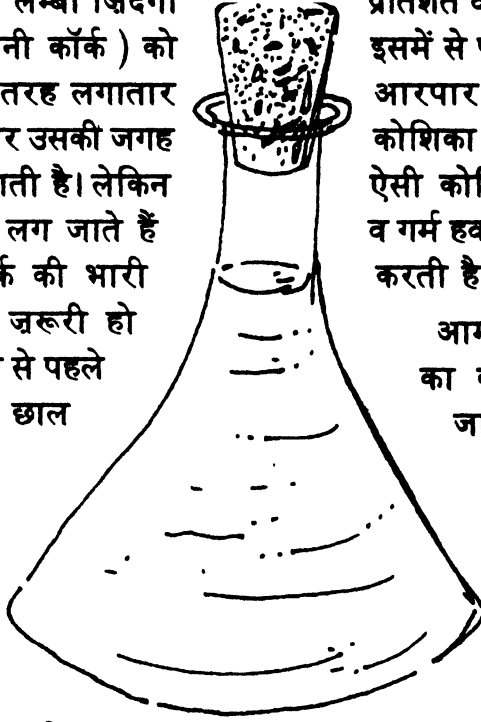 लम्बी ज़िंदगी
नी कॉर्क ) को
तरह लगातार
र उसकी जगह
ाती है। लेकिन
लग जाते हैं
र्क की भारी
ज़रूरी हो
से पहले
छाल
प्रतिशत
इसमें से
आरपार
कोशिका
ऐसी कोशि
व गर्म हव
करती है
आम
का
ज